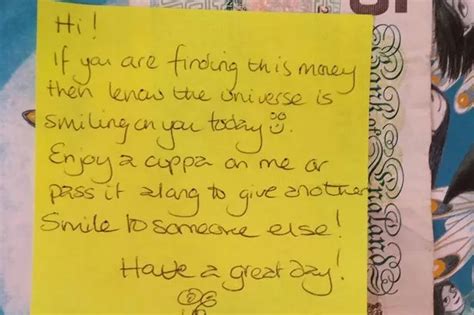 Hi!
If you are finding this money
then know the universe is
smiling on you today
Enjoy a cuppa on me or
pass it along to give another
Smile to someone else!
Have a great day!
Bank of England